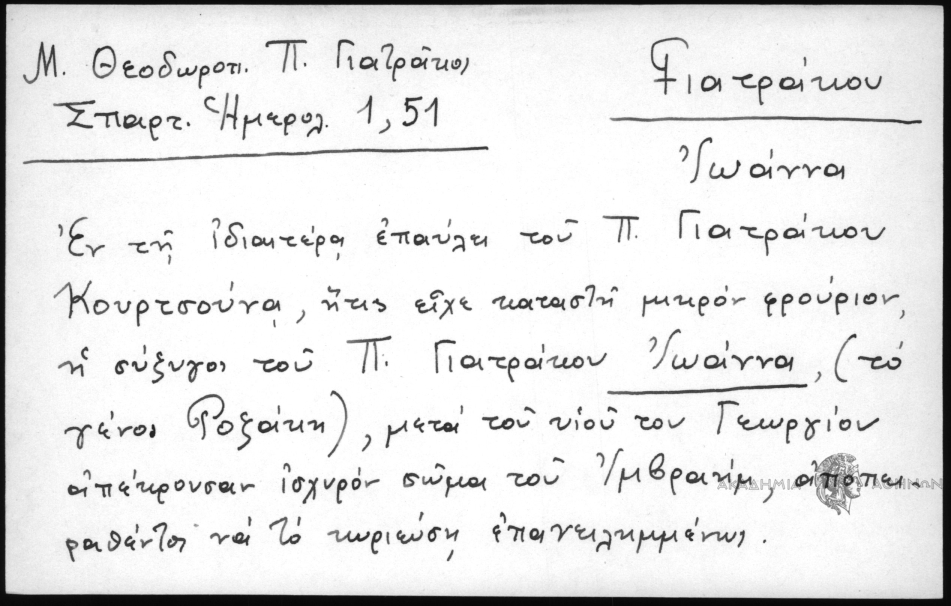 Μ. Θεοδωροπ. Π. Γιατράκος
Σπαρτ. Ἡμερολ. 1, 51
Γιατράκου
Ἰωάννα
Ἐν τῇ ἰδιαιτέρᾳ ἐπαύλει τοῦ Π. Γιατράκου
Κουρτσούνᾳ, ἥτις εἶχε καταστῆ μικρόν φρούριον,
ἡ σύζυγος τοῦ Π. Γιατράκου Ἰωάννα, (τό
γένος Ροζάκη), μετά τοῦ υἱοῦ του Γεωργίου
ἀπέκρουσαν ἰσχυρόν σῶμα τοῦ Ἰμβραήμ, ἀποπει-
ραθέντος νά τό κυριεύσῃ ἐπανειλημμένως.
ΑΚΑΔΗΜΙΑ ΑΘΗΝΩΝ